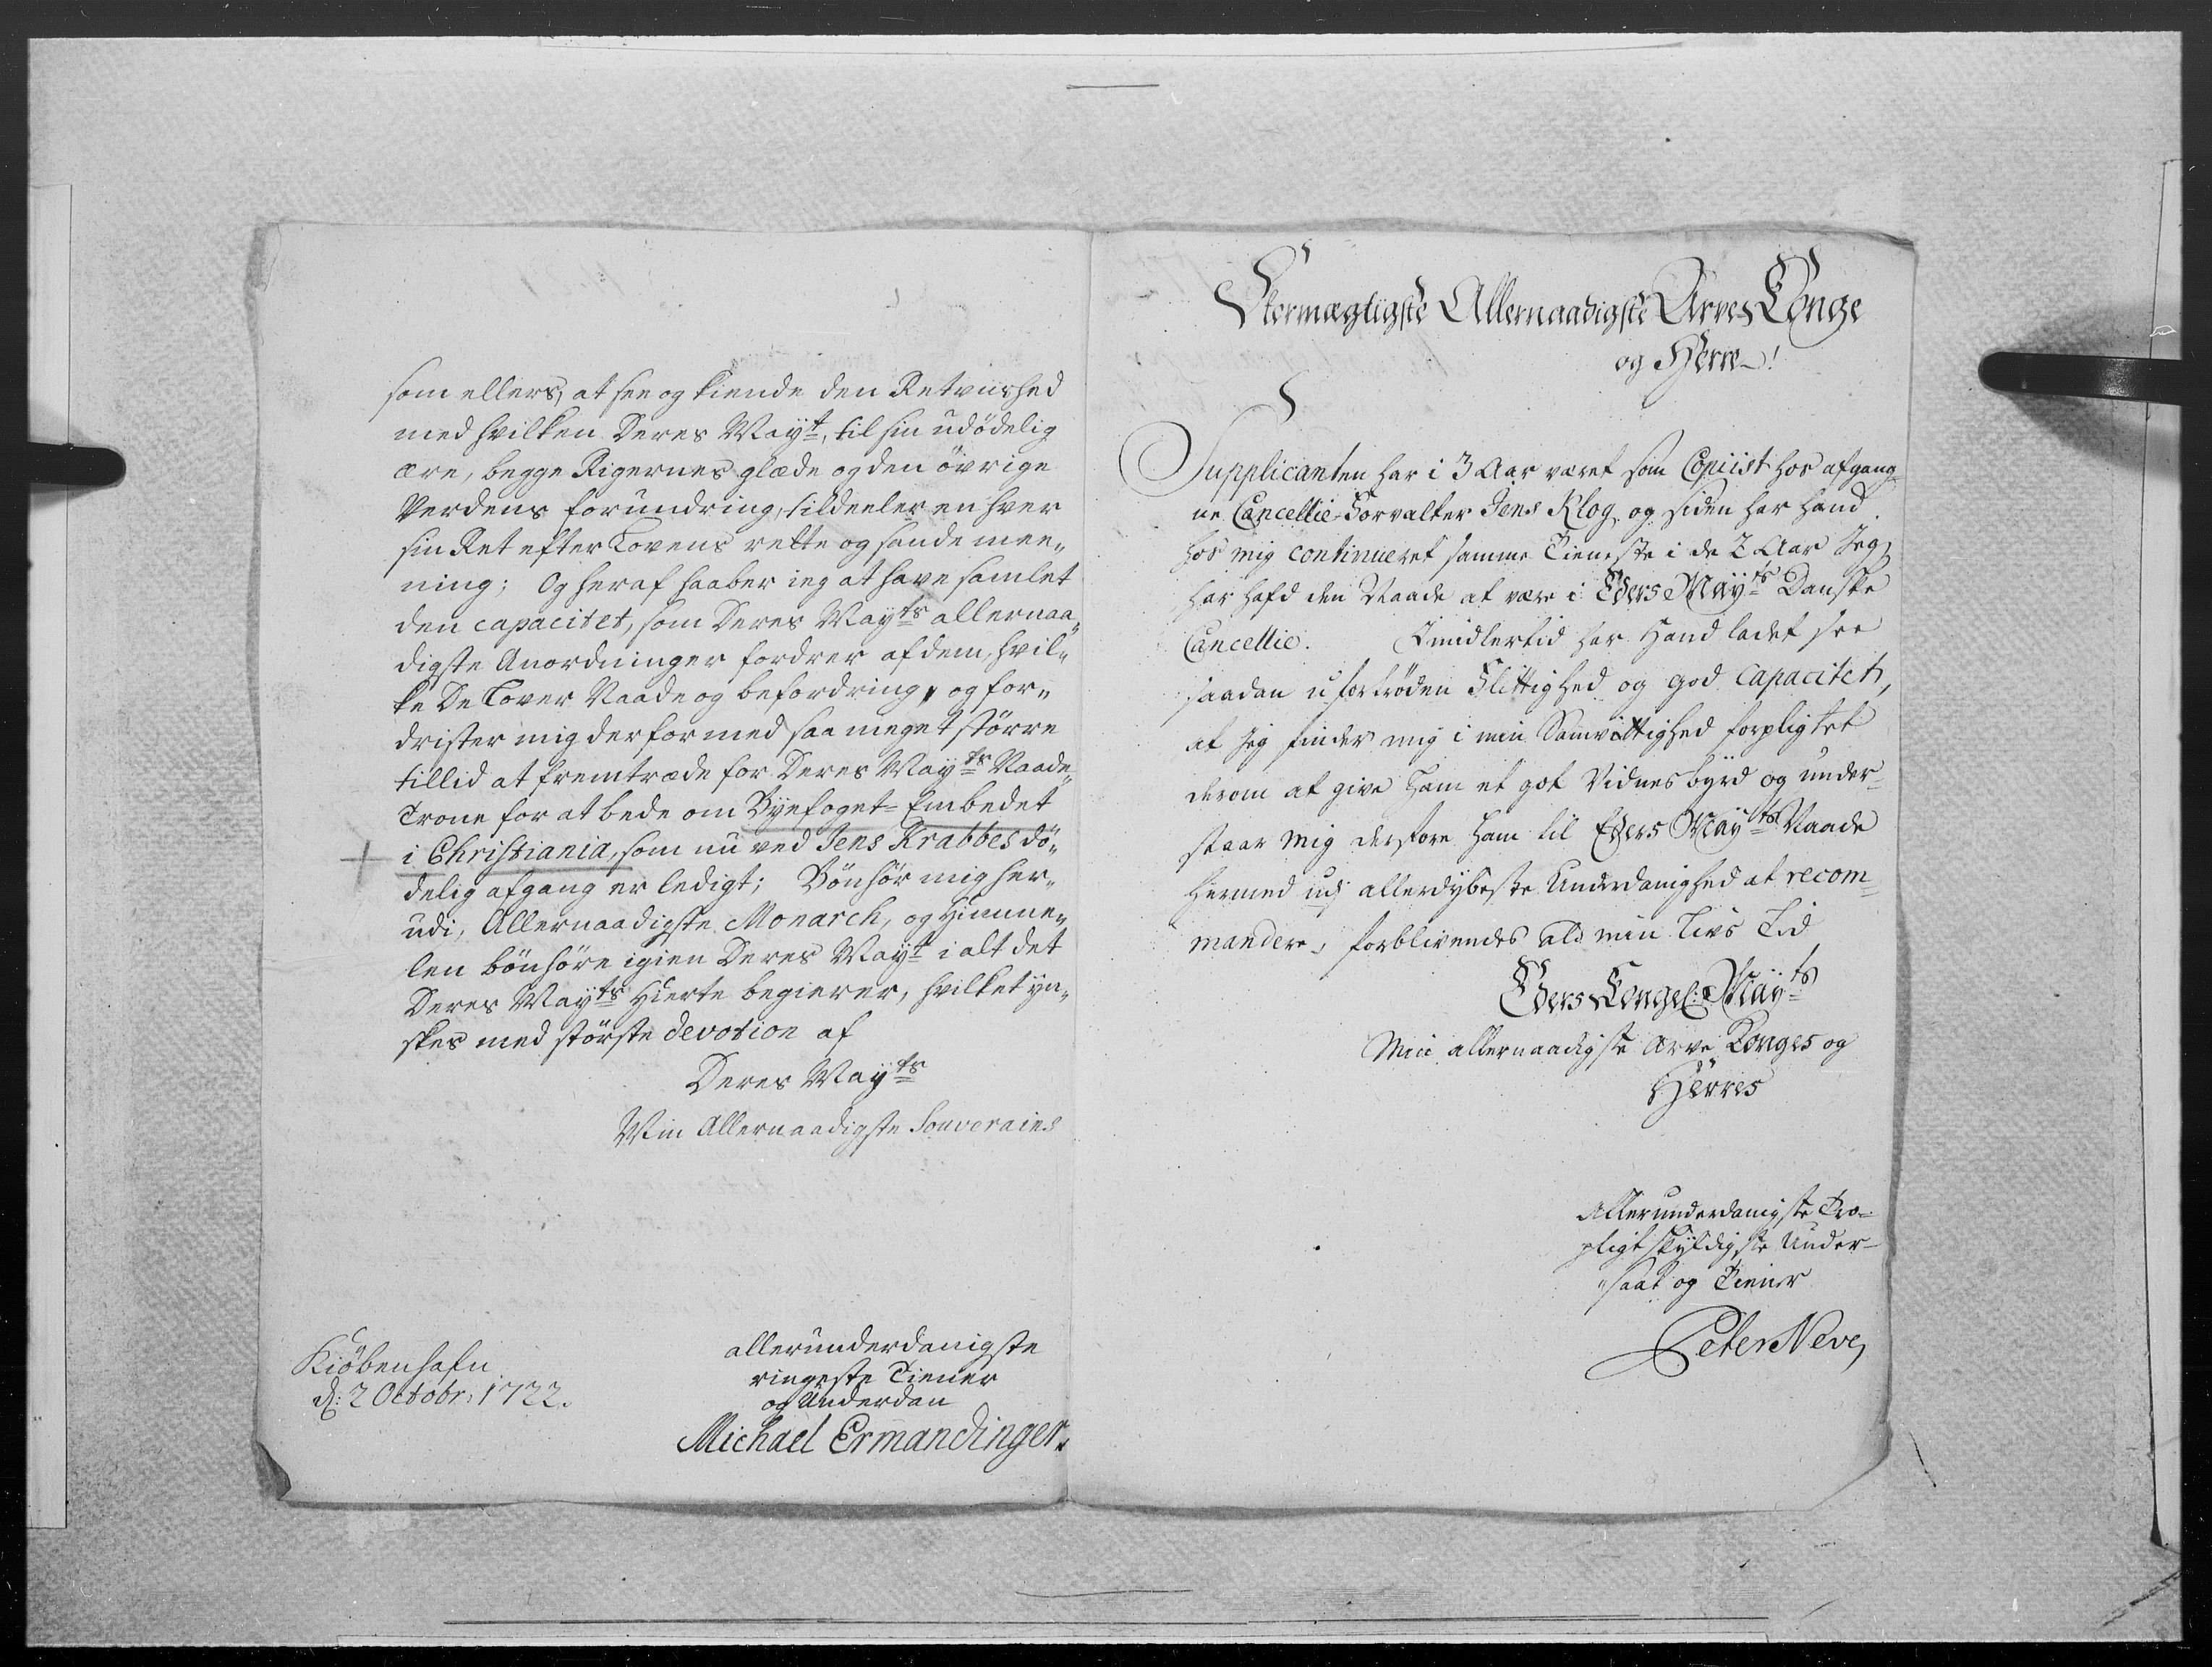 som ellers, at see og kiende den Retviished
med hvilken Deres Mayt, til sin udödelig
ære, begge Rigernes glæde og den övrige
Verdens forundring, tildeeler en hver
sin Ret efter Lovens rette og sande mee„
ning; Og heraf haaber ieg at have samlet
den capacitet, som Deres Mayts allernaa„
digste Anordninger fordrer af dem, hvil„
ke De Lover Naade og befordring, og for„
drister mig derfor med saa meget större
tillid at fremtræde for Deres Mayts Naade„
Trone for at bede om Byefoget-Embedet
i Christiania, som nu ved Jens Krabbes dö„
delig afgang er ledigt; Bönhör mig her„
udi, Allernaadigste Monarch, og Himme„
len bönhöre igien Deres Mayt i alt det
Deres Mayts Hierte begierer, hvilket yn„
skes med störste devotion af
Deres Mayts
Min Allernaadigste Souverains
Kiöbenhafn
d: 2 Octobr: 1722.
allerunderdanigste
ringeste Tiener
og Underdan
Michael Ermandinger.
Stormægtigste Allernaadigste Arve Konge
og Herre!
Supplicanten har i 3 Aar været som Copiist hos afgang„
ne Cancellie-Forvalter Jens Klog, og siden har hand
hos mig continueret samme Tieneste i de 2 Aar Jeg
har hafd den Naade at være i Eders Mayts Danske
Cancellie. Imidlertid har Hand ladet see
saadan ufortröden Flittighed og god Capacitet,
at Jeg finder mig i min Samvittighed forpligtet
derom at give Ham et got Vidnesbyrd og under„
staar mig derfore Ham til Eders Mayts Naade
hermed udj allerdybeste Underdanighed at recom„
mandere, forblivendes ald min Livs Tid
Eders Kongel: Mayts
Min allernaadigste Arve Konges og
Herres
Allerunderdanigste Troe
pligt skyldigste Under-
„saat og Tiener
Peter Neve